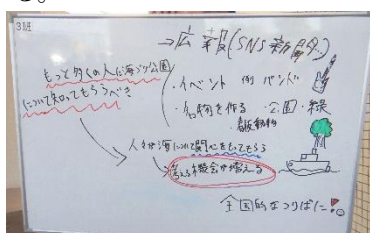 3班
→広報(SNS 新聞
もっと多くの人に海づり公園
について知ってもらうべき
・イベント 例 バンド
・名物を作る ・公園・緑
看板動物
人々が海について関心をもってもらう
考える機会が増える
全国的なつりばに!